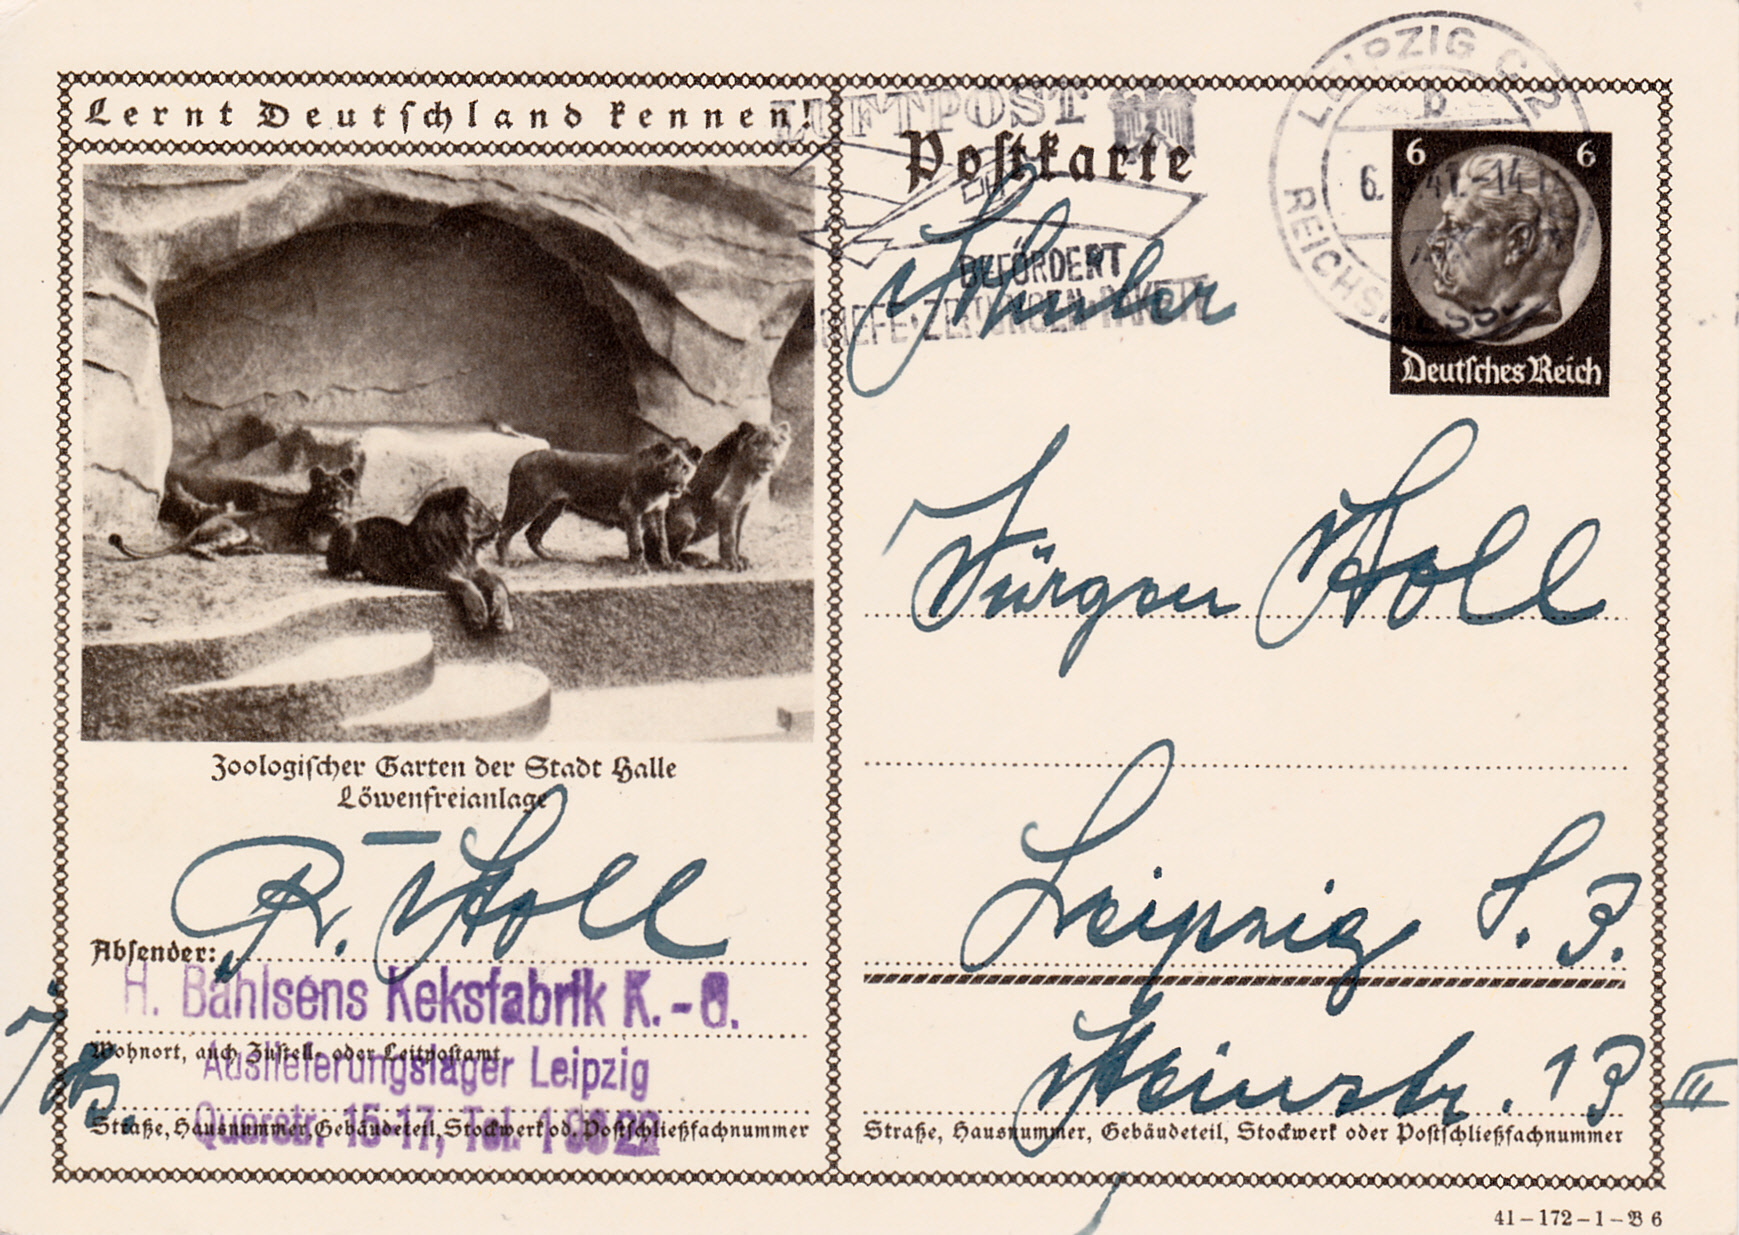 Lernt Deutschland kennen!
Zoologischer Garten der Stadt Halle
Löwenfreianlage
R. Noll
Absender:
H. Bahlsens Keksfabrik K.-G.
Wohnort, auch Zustell- oder Leitpostamt
Auslieferungslager Leipzig
Querstr. 15-17, Tel.
Straße, Hausnummer, Gebäudeteil, Stockwerk od. Postschließfachnummer
LUFTPOST
BEFÖRDERT
BRIEFE·ZEITUNGEN·PAKETE
Postkarte
LEIPZIG C 2
b
6. 41.-14
REICHSMESSE
6 6
Deutsches Reich
Schüler
Jürgen Noll
Leipzig S. 3.
Steinstr. 13 III
Straße, Hausnummer, Gebäudeteil, Stockwerk oder Postschließfachnummer
41-172-1-B 6